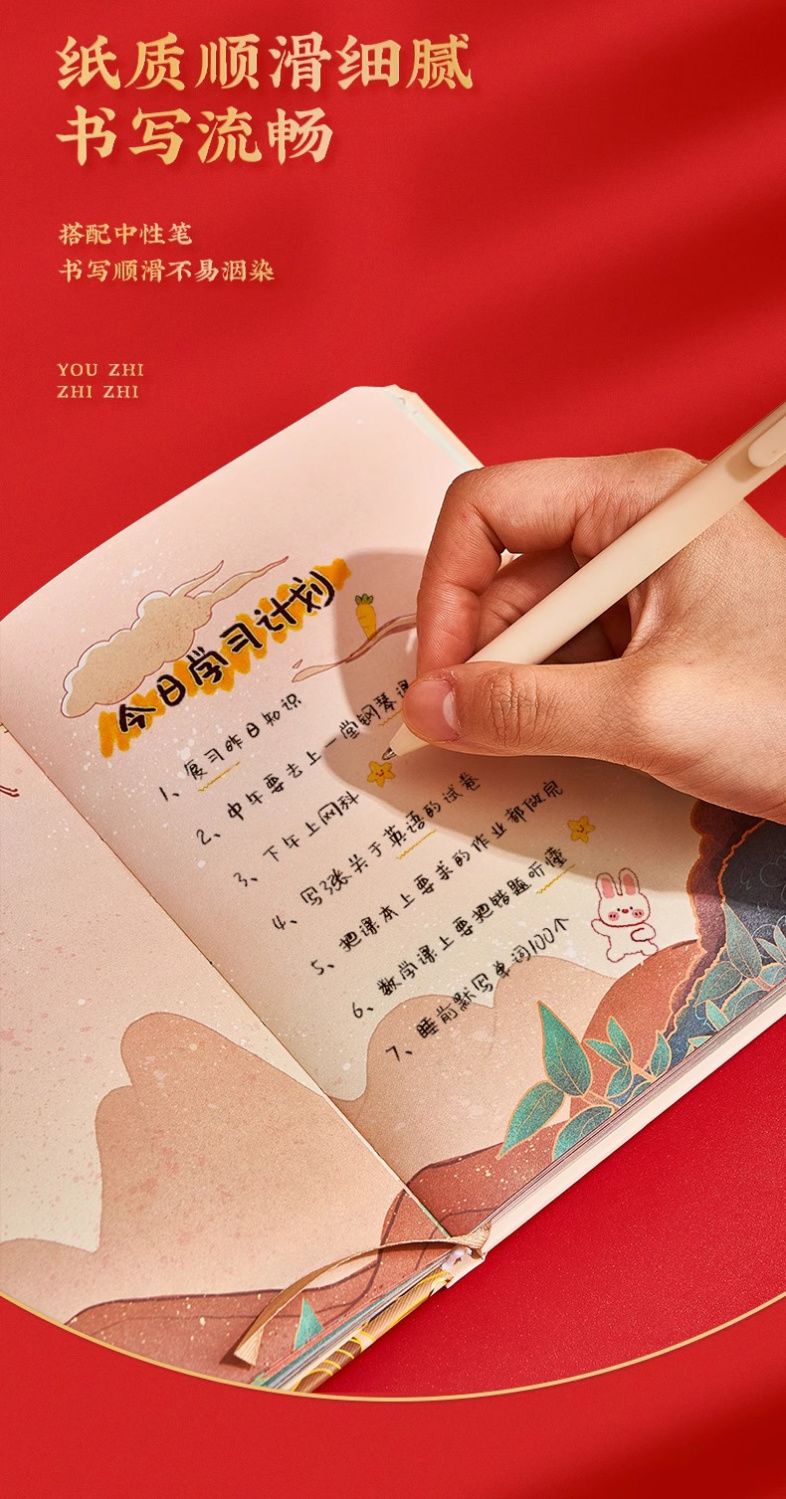 纸质顺滑细腻
书写流畅
搭配中性笔
书写顺滑不易洇染
YOU ZHI
ZHI ZHI
今日学习计划
1、复习昨日知识
2、中午要去上一堂钢琴课
3、下午上网科
4、写3张关于英语的试卷
5、把课本上要求的作业都做完
6、数学课上要把错题听懂
7、睡前默写单词100个